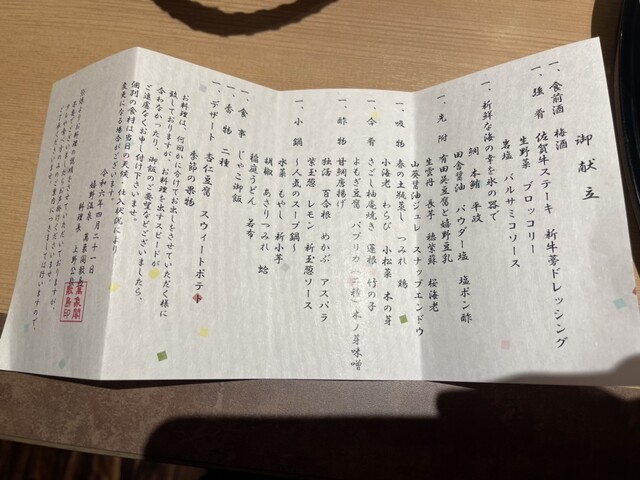 御献立
一、食前酒 梅酒
一、強肴 佐賀牛ステーキ 新牛蒡ドレッシング
生野菜 ブロッコリー
岩塩 バルサミコソース
一、新鮮な海の幸を氷の器で
鯛 本鮪 平政
田舎醤油 パウダー塩 塩ポン酢
一、先附 有田呉豆腐と嬉野豆乳
生雲丹 長芋 穂紫蘇 桜海老
山葵醤油ジュレ スナップエンドウ
一、吸物 春の土瓶蒸し つみれ 鶏
小海老 わらび 小松菜 木の芽
一、合肴 さごし柚庵焼き 蓮根 竹の子
よもぎ豆腐 パプリカ(二種) 木ノ芽味噌
一、酢物 甘鯛唐揚げ
独活 百合根 めかぶ アスパラ
紫玉葱 レモン 新玉葱ソース
一、小鍋 〜人気のスープ鍋〜
水菜 もやし 新小芋
胡椒 あさりつみれ 蛤
稲庭うどん 若布
一、食事 じゃこ御飯
一、香物 二種
一、デザート 杏仁豆腐 スウィートポテト
季節の果物
お料理は、何回かに合けてお出しをさせていただく様に
致しておりますが、お料理を出すスピードが
合わなかったり、御飯のご要望などございましたら、
ご遠慮なくお申し付け下さいませ。
個別の食材は当日の天候、仕入状況により
変更になる場合がございます。
令和六年四月二十一日
嬉野温泉 萬象閣敷島
料理長 上野公
萬象閣敷島印